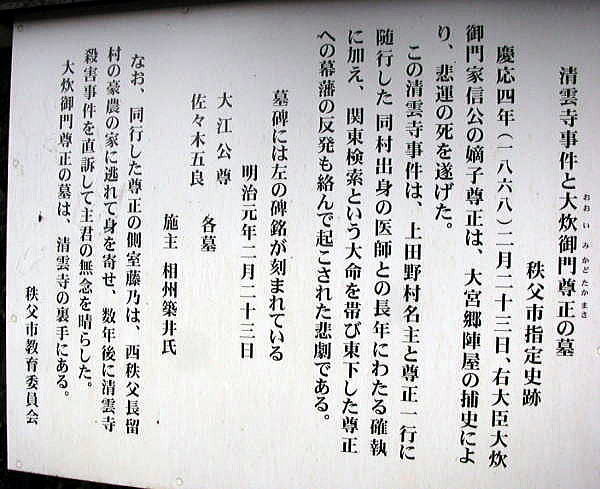 清雲寺事件と大炊御門尊正の墓
おおいみかどたかまさ
秩父市指定史跡
慶応四年(一八六八)二月二十三日、右大臣大炊
御門家信公の嫡子尊正は、大宮郷陣屋の捕史によ
り、悲運の死を遂げた。
この清雲寺事件は、上田野村名主と尊正一行に
随行した同村出身の医師との長年にわたる確執
に加え、関東検索という大命を帯び東下した尊正
への幕藩の反発も絡んで起こされた悲劇である。
墓碑には左の碑銘が刻まれている
明治元年二月二十三日
大江公尊
佐々木五良
各墓
施主 相州築井氏
なお、同行した尊正の側室藤乃は、西秩父長留
村の豪農の家に逃れて身を寄せ、数年後に清雲寺
殺害事件を直訴して主君の無念を晴らした。
大炊御門尊正の墓は、清雲寺の裏手にある。
秩父市教育委員会